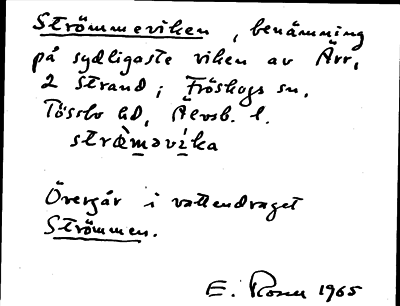 Strömmeviken, benämning
på sydligaste viken av Ärr,
2 Strand; Fröskogs sn.
Tössbo hd, Älvsb. l.
strœ̀məvíka
Övergår i vattendraget
Strömmen.
E. Rosell 1965